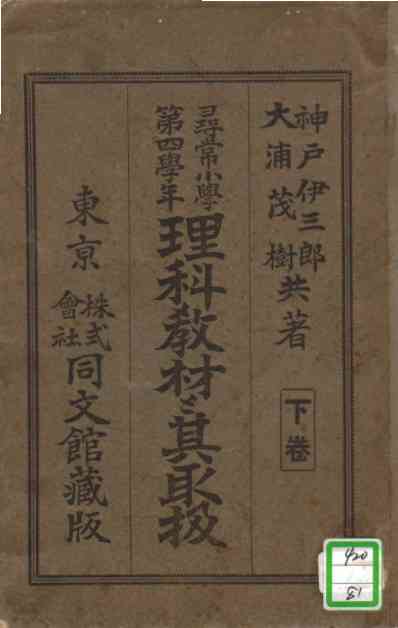 神戸伊三郎
大浦茂樹共著
下卷
尋常小學
第四學年
理科教材と其取扱
東京
株式
會社
同文館藏版
420
81